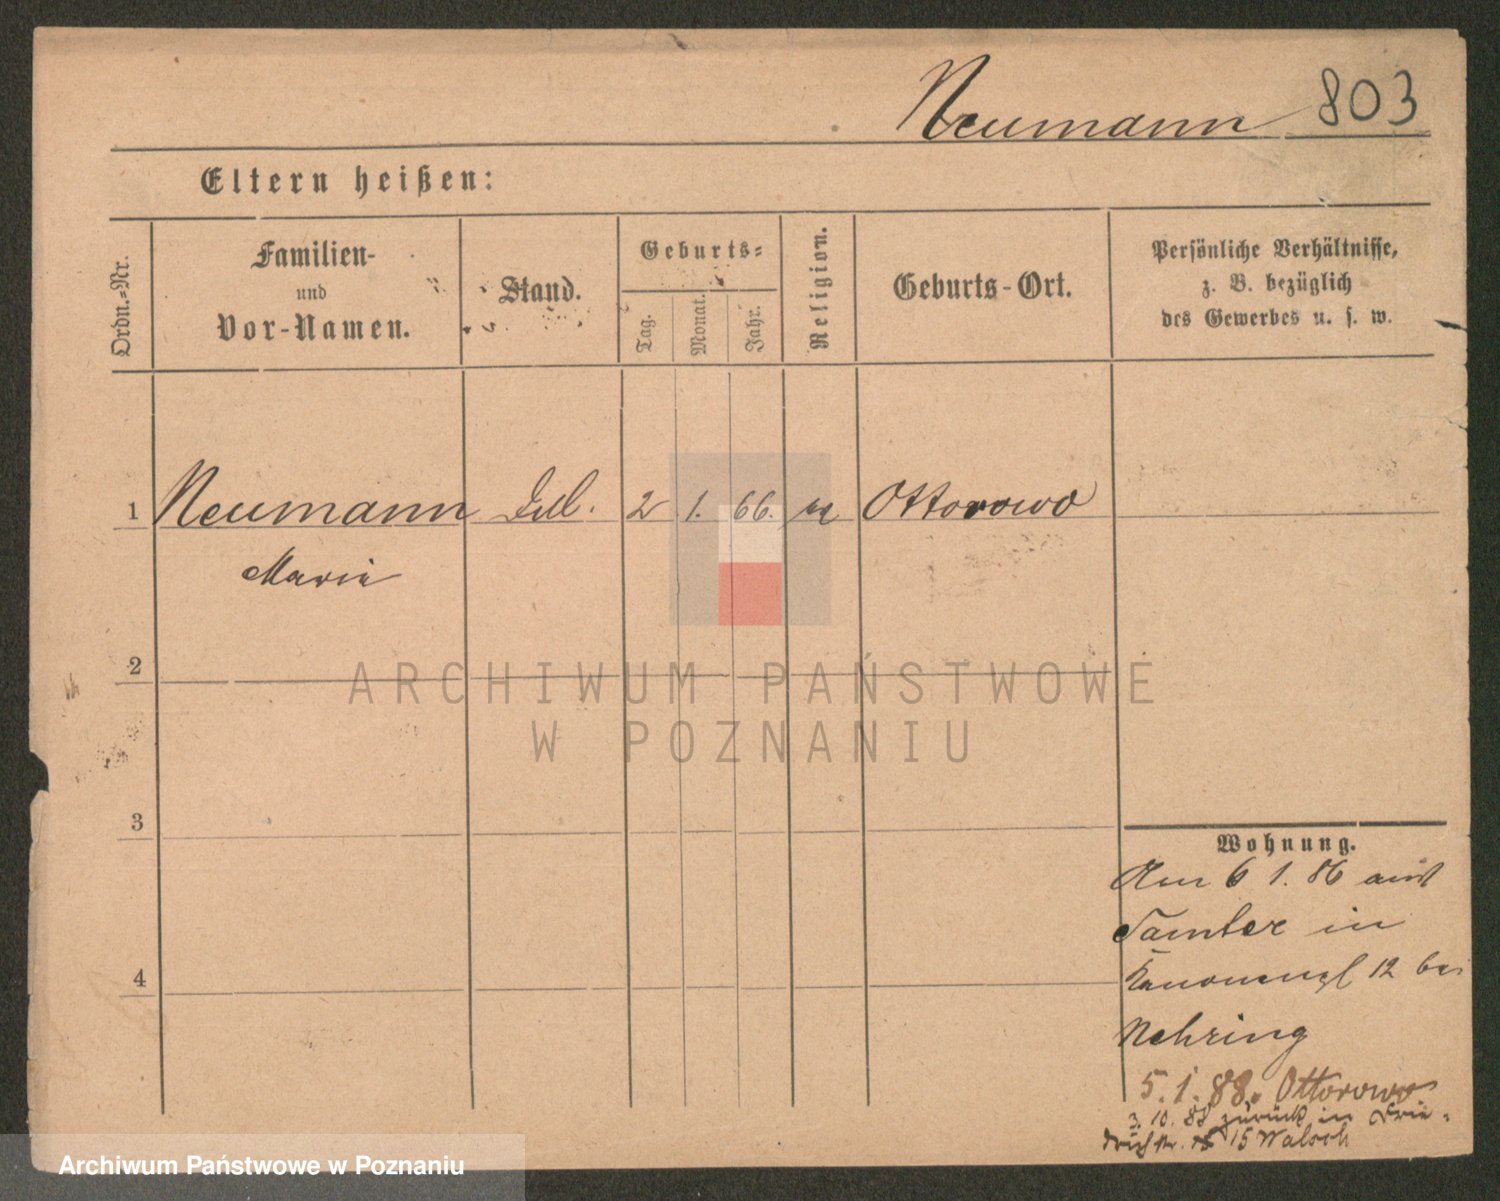 Neumann 803
Eltern heißen:
Ordn.-Nr.
Familien-
und
Vor-Namen.
Stand.
Geburts-
Tag.
Monat.
Jahr.
Religion.
Geburts-Ort.
Persönliche Verhältnisse,
z. B. bezüglich
des Gewerbes u. s. w.
1 Neumann 2 1. 66. Ottorowo
Marie
2
ARCHIWUM PAŃSTWOWE
W POZNANIU
3
Wohnung.
Am 6 1. 86 aus
Samter in
4
12 bei
Nehring
5.1.88. Ottorowo
3.10.88 zurück in Frie-
drichstr. 15
Archiwum Państwowe w Poznaniu